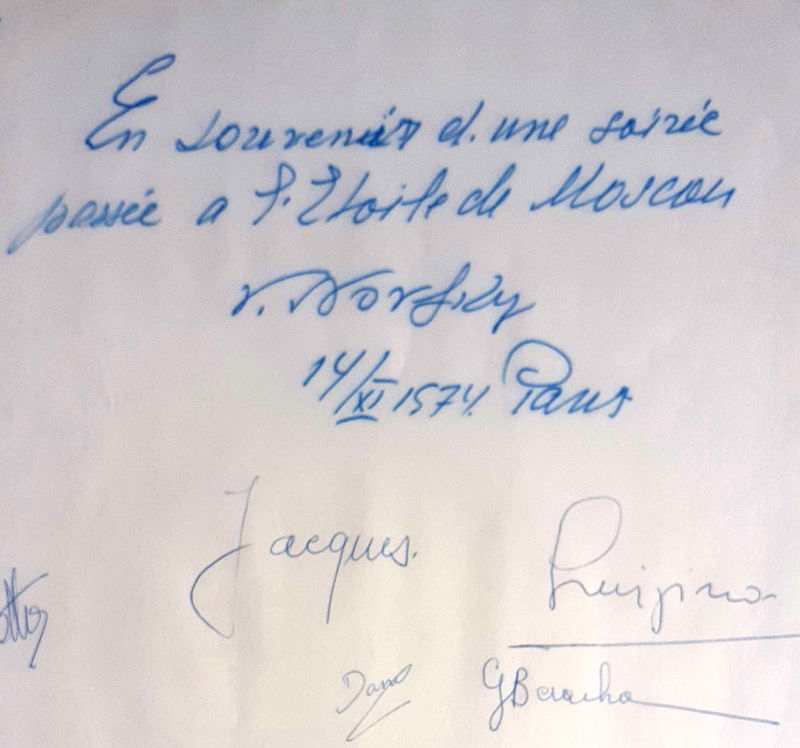 En souvenir d'une soirée
passée a l'Etoile de Moscou
V. Novsky
14/XI 1974. Paris
Jacques.
Luigina
GBeracha